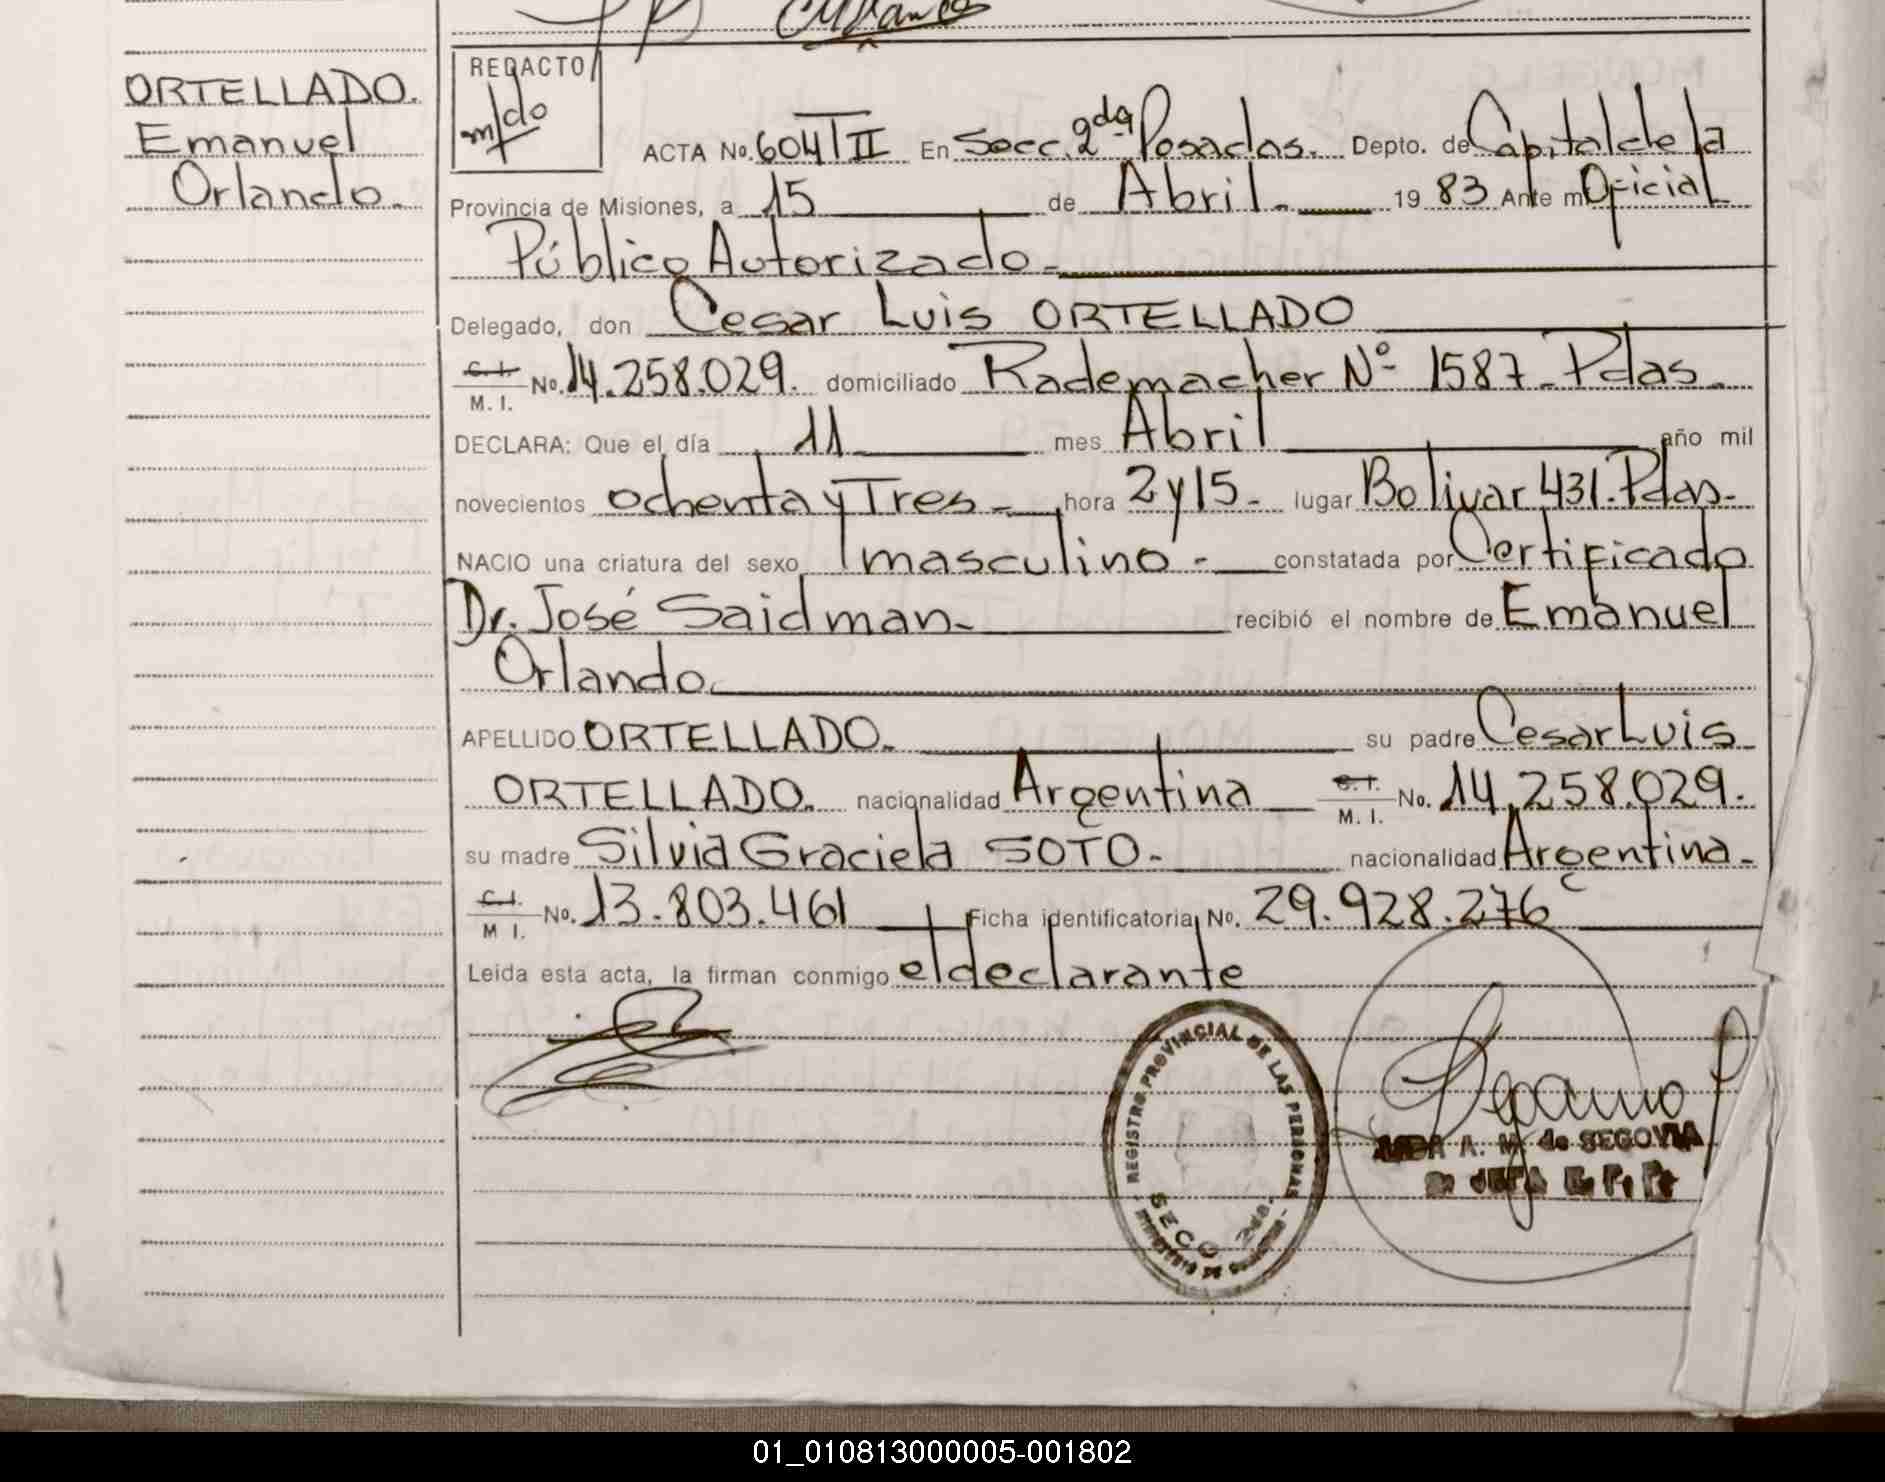 ORTELLADO.
Emanuel
Orlando.
REDACTO
m/do
ACTA No. 604 T II En Secc. 2da Posadas. Depto. de Capital de la
Provincia de Misiones, a 15 de Abril. 19 83 Ante mi Oficial
Público Autorizado.
Delegado, don Cesar Luis ORTELLADO
C. I. M. I. No. 14.258.029. domiciliado Rademacher Nº 1587. Pdas.
DECLARA: Que el día 11 mes Abril año mil
novecientos ochenta y Tres hora 2 y 15 - lugar Bolivar 431. Pdas.
NACIO una criatura del sexo masculino - constatada por Certificado
Dr. José Saidman - recibió el nombre de Emanuel
Orlando.
APELLIDO ORTELLADO. su padre Cesar Luis
ORTELLADO. nacionalidad Argentina C. I. M. I. No. 14.258.029.
su madre Silvia Graciela SOTO - nacionalidad Argentina -
C. I. M I. No. 13.803.461 Ficha identificatoria No. 29.928.276
Leida esta acta, la firman conmigo el declarante
REGISTRO PROVINCIAL DE LAS PERSONAS
SECC 2da.
A. M. de SEGOVIA
JEFA
01_010813000005-001802